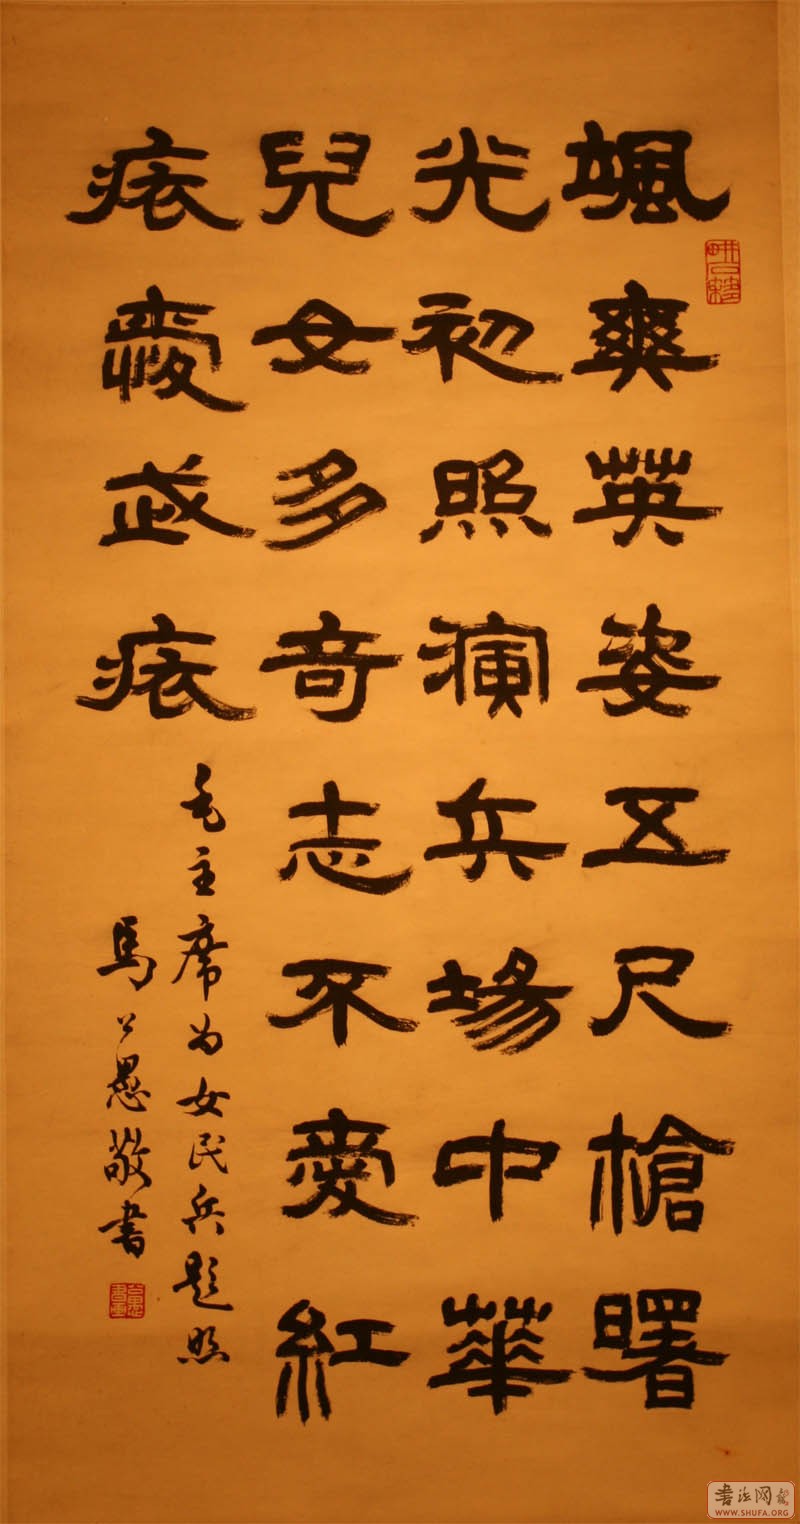 颯爽英姿五尺槍曙
光初照演兵場中華
兒女多奇志不愛紅
裝愛武裝
毛主席为女民兵題照
馬公愚敬書
畊石簃
书法网
WWW.SHUFA.ORG